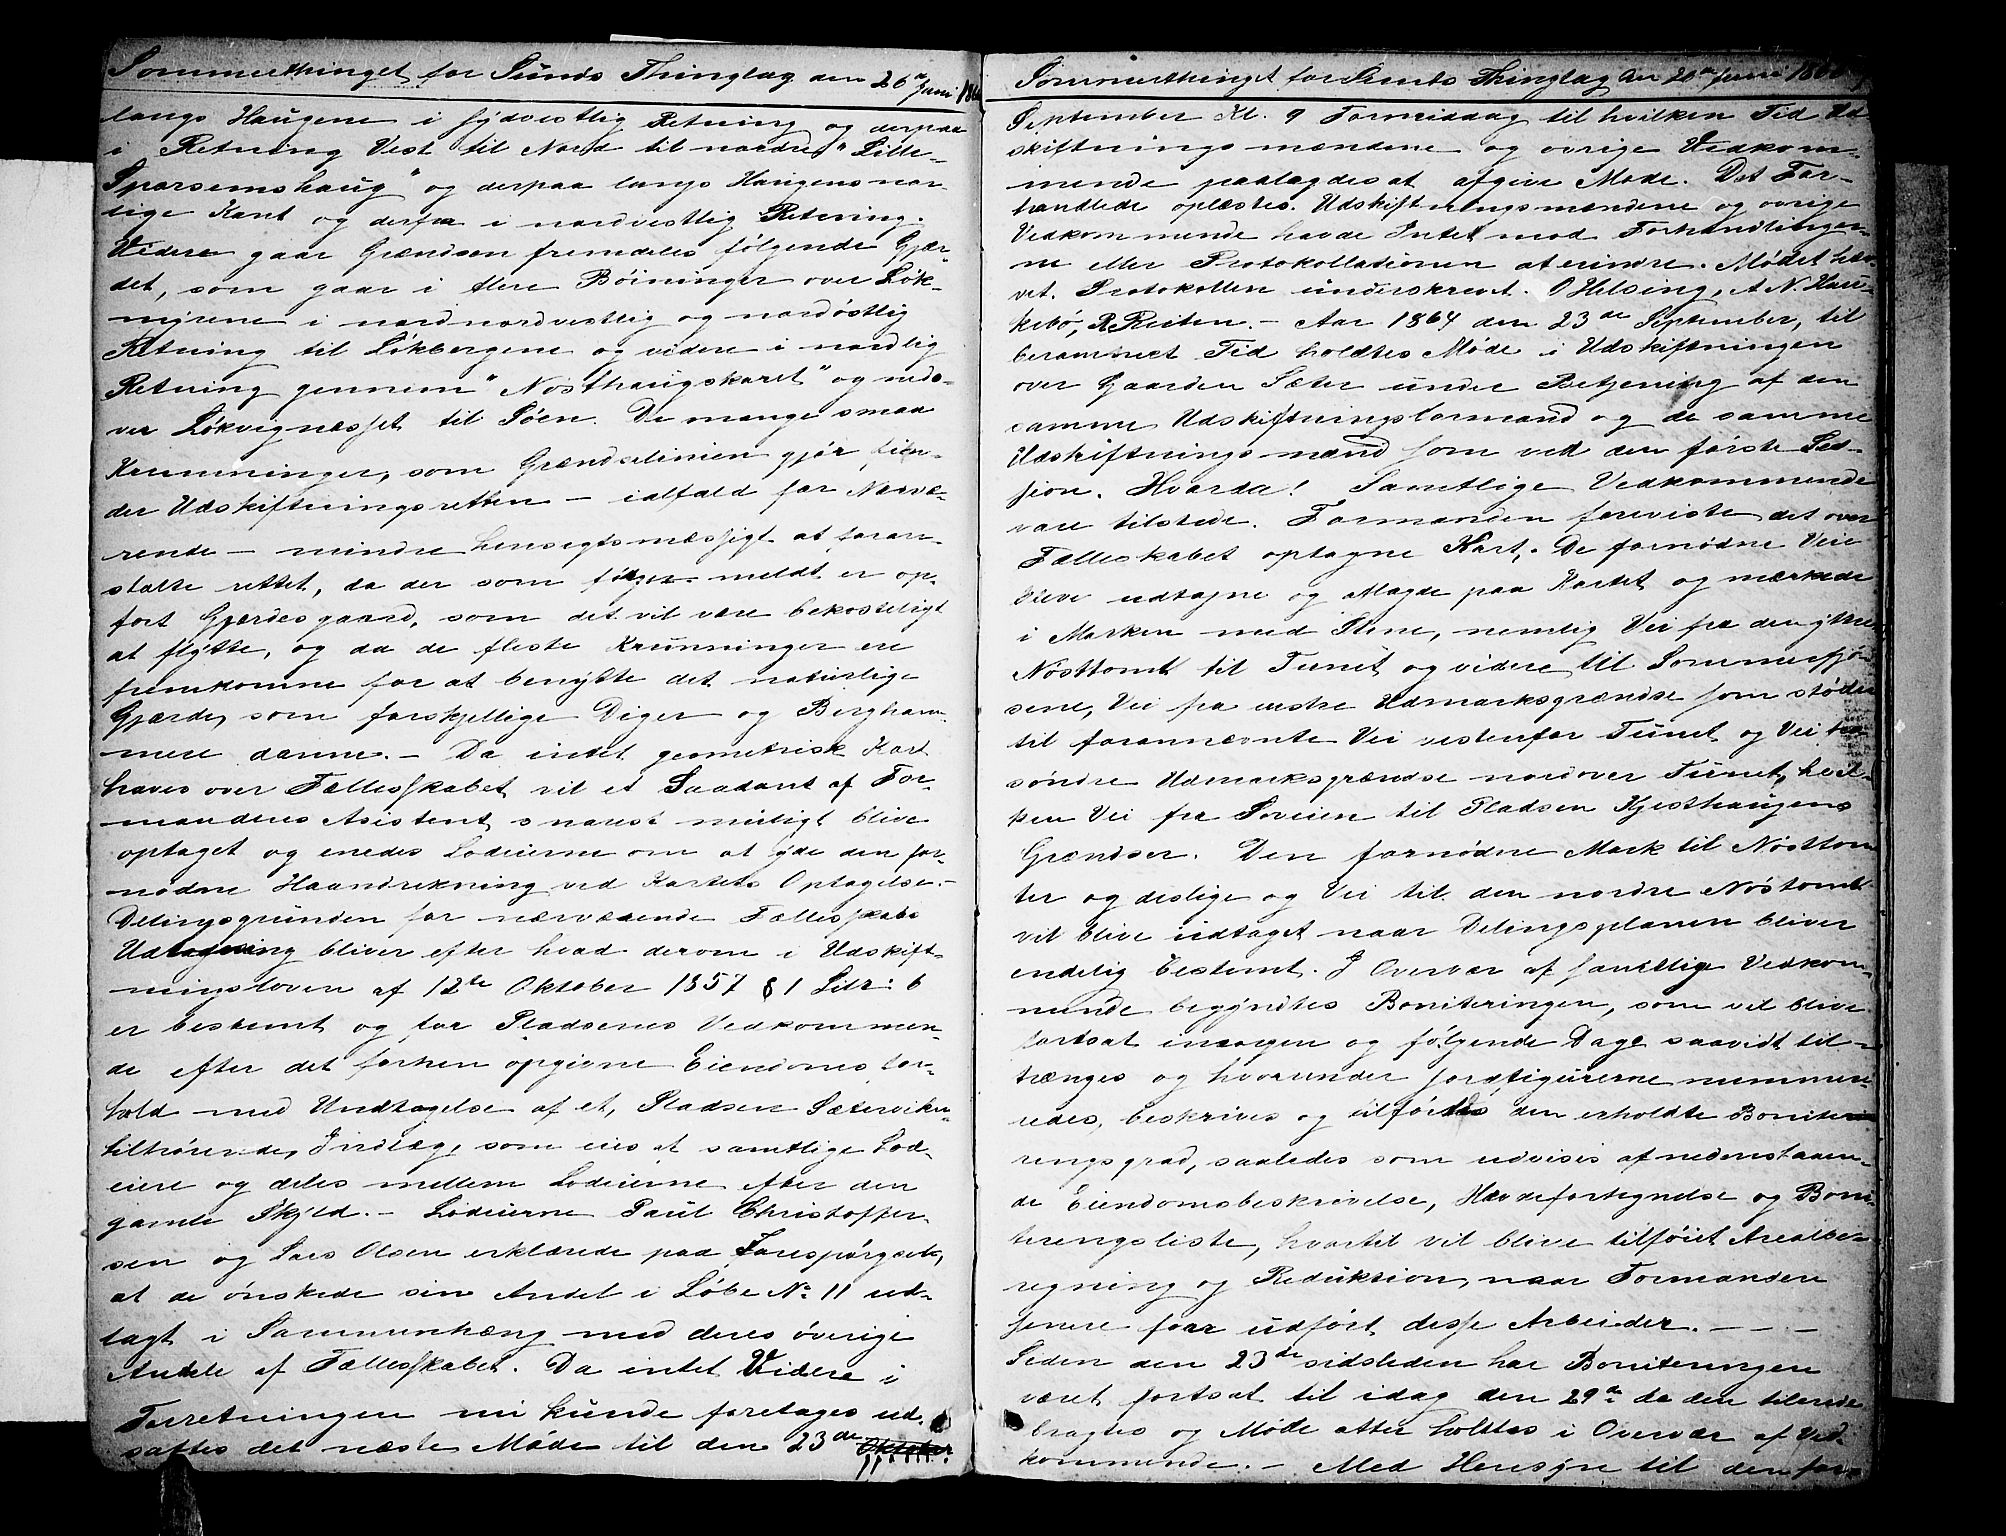 Sommerthinget for Sunds Thinglag den 20de Juni 186
langs Haugene i sydvestlig Retning og derpaa
i Retning Vest til Nord til nordre "Lille-
Sparsemshaug" og derpaa langs Haugens nor-
lige Kant og derpaa i nordvestlig Retning.
Videre gaar Grændsen fremdeles følgende Gjær-
det, som gaar i flere Böininger over Løk-
myrene i nordnordvestlig og nordøstlig
Retning til Løkbergene og videre i nordlig
Retning gennem "Nøsthaugskaret" og nedo-
ver Løkvignæsset til Søen. De mange smaa
Krumninger, som Grændselinien gjør, fin-
der Udskiftningsretten – ialfald for Nærvæ-
rende – mindre hensigtsmæssigt at foran-
stalte rettet, da der som meldt er op-
ført Gjærdesgaard, som det vil være bekosteligt
at flytte, og da de fleste Krumninger ere
fremkomne for at benytte det naturlige
Gjærde, som forskjellige Diger og Bergham-
mere danne. – Da intet geometrisk Kart
haves over Fællesskabet vil et Saadant af For-
mandens Asistent snarest muligt blive
optaget og enedes Lodeierne om at yde den for-
nødne Haandrekning ved Kartets Optagelse. –
Delingsgrunden for nærværende Fællesskabs
Udtagning bliver efter hvad derom i Udskift-
ningsloven af 12te Oktober 1857 § 1 Litr: b
er bestemt og for Pladsenes Vedkommen-
de efter det forhen opgivne Eiendomsfor-
hold med Undtagelse af et, Pladsen Sætervikens
tilhørende, Indlæg, som eies af samtlige Lod-
eiere og deles mellem Lodeierne efter den
gamle Skyld. – Lodeierne Paul Christoffer-
sen og Lars Olsen erklærede paa Forespørgsel,
at de ønskede sin Andel i Løbe No 11 ud-
lagt i Sammenhæng med deres øvrige
Andele af Fællesskabet. Da intet Videre i
Forretningen nu kunde foretages ud-
sattes det næste Møde til den 23de Oktober
Sommerthinget for Sunds Thinglag den 20de Juni 186
September Kl. 9 Formiddag til hvilken Tid Ud-
skiftningsmændene og øvrige Vedkom-
mende paalagdes at afgive Møde. Det For-
handlede oplæstes. Udskiftningsmændene og øvrige
Vedkommende havde Intet mod Forhandlinger-
ne eller Protokollationen at erindre. Mødet hæ-
vet. Protokollen underskrevet. O Helsing, A N. Hau-
kebø, R Reiten. – Aar 1864 den 23de September, til
berammet Tid holdtes Møde i Udskiftningen
over Gaarden Sæter under Betjening af den
samme Udskiftningsformand og de samme
Udskiftningsmænd som ved den første Ses-
sion. Hvorda! Samtlige Vedkommende
vare tilstede. Formanden foreviste det over
Fælleskabet optagne Kart. De fornødne Veie
bleve udtagne og aflagde paa Kartet og mærkede
i Marken med Stene, nemlig Vei fra den ytre
Nøsttomt til Tunet og videre til Sommerfjø-
sene, Vei fra vestre Udmarksgrændse som støder
til forannævnte Vei vestenfor Tunet og Vei fra
søndre Udmarksgrændse nordover Tunet, hvil-
ken Vei fra Soveien til Pladsen Kjesthaugens
Grændser. Den fornødne Mark til Nøsttom-
ter og deslige og Vei til den nordre Nøstomt
vil blive udtaget naar Delingsplanen bliver
endelig bestemt. I Overvær af samtlige Vedkom-
mende begyndtes Boniteringen, som vil blive
fortsat imorgen og følgende Dage saavidt til-
trænges og hvorunder Jordfigurerne nummere-
redes, beskrives og tilføies den erholdte Bonite-
ringsgrad, saaledes som udvises af nedenstaaen-
de Eiendomsbeskrivelse, Hævdefortegnelse og Boni-
teringsliste, hvortil vil blive tilføiet Arealbe-
regning og Reduktion, naar Formanden
senere faar udført disse Arbeider. – – –
Siden den 23de sidstleden har Boniteringen
været fortsat til idag den 29de da den tilende
bragtes og Møde atter holdtes i Overvær af Ved-
kommende. – Med Hensyn til den for-